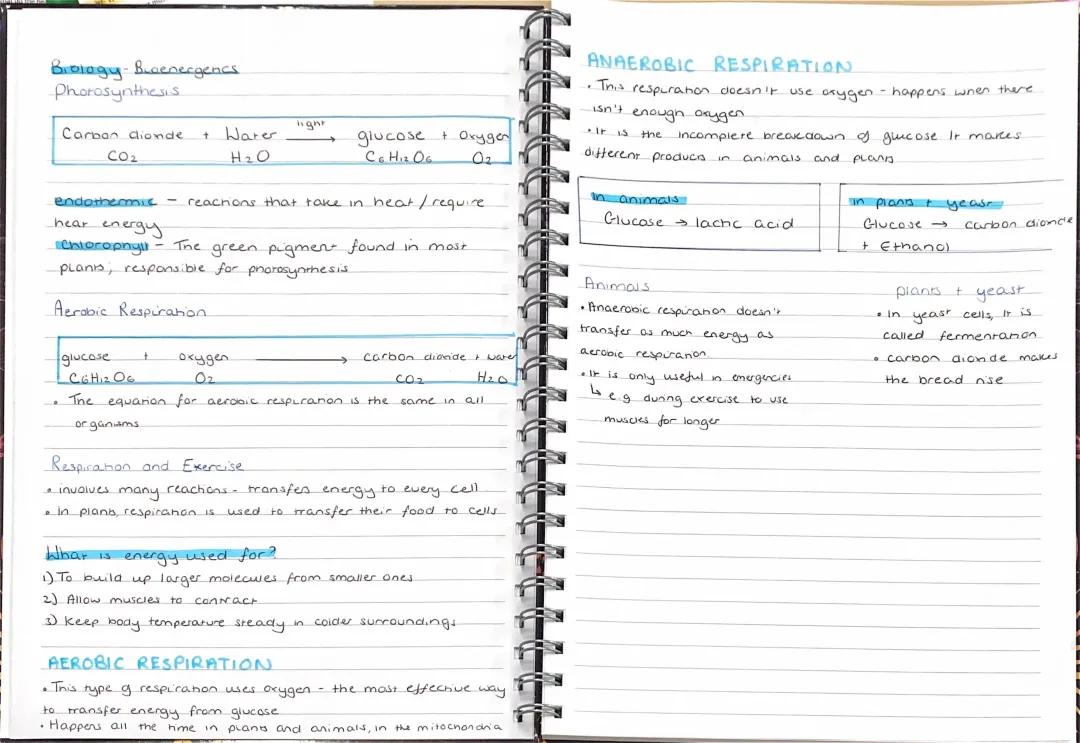 Biology - Bioenergencs
Photosynthesis
Carbon dioxide + Water light → glucose + Oxygen
CO2 H2O C6H12O6 O2
endothermic – reactions that take in heat / require
heat energy
Chlorophyll – The green pigment found in most
plants, responsible for photosynthesis
Aerobic Respiration
glucose + oxygen → carbon dioxide + water
C6H12O6 O2 CO2 H2O
• The equation for aerobic respiration is the same in all
organisms
Respiration and Exercise
• involves many reactions - transfers energy to every cell
• In plants, respiration is used to transfer their food to cells
What is energy used for?
1) To build up larger molecules from smaller ones
2) Allow muscles to contract
3) Keep body temperature steady in colder surroundings
AEROBIC RESPIRATION
• This type of respiration uses oxygen - the most effective way
to transfer energy from glucose
• Happens all the time in plants and animals, in the mitochondria
ANAEROBIC RESPIRATION
• This respiration doesn't use oxygen - happens when there
isn't enough oxygen
• It is the incomplete breakdown of glucose It makes
different products in animals and plants
In animals
Glucose → lactic acid
in plants + yeast
Glucose → carbon dioxide
+ Ethanol
Animals
• Anaerobic respiration doesn't
transfer as much energy as
aerobic respiration
• It is only useful in emergencies
↳ e.g during exercise to use
muscles for longer
plants + yeast
• In yeast cells, it is
called fermentation
• carbon dioxide makes
the bread rise